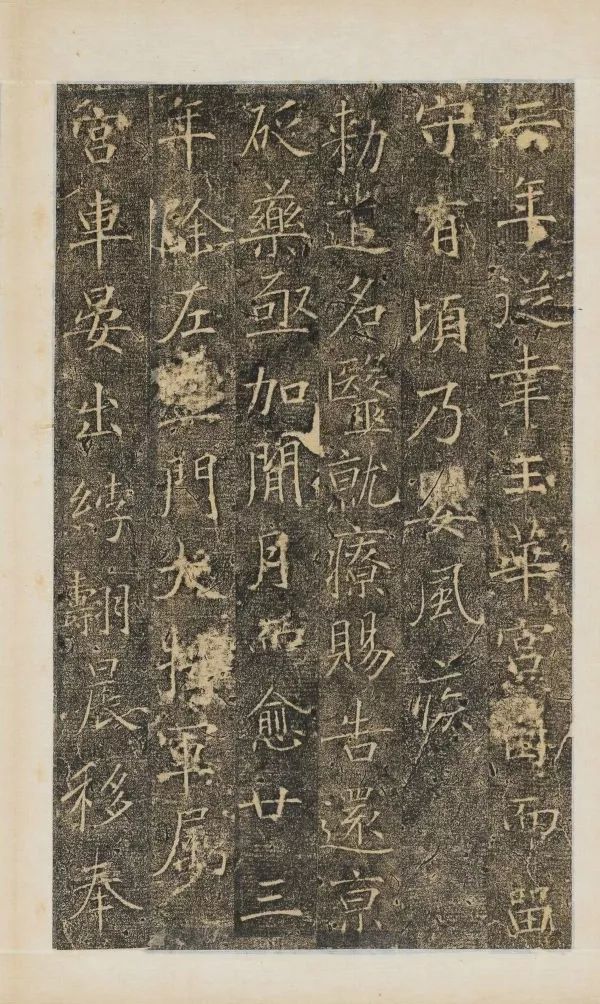 六年從幸玉華宮因而留
守有頃乃嬰風疾
勑遣名毉就療賜告還亰
砭藥亟加閒月而愈廿三
年除左監門大將軍屬
宮車晏出綍晨移奉